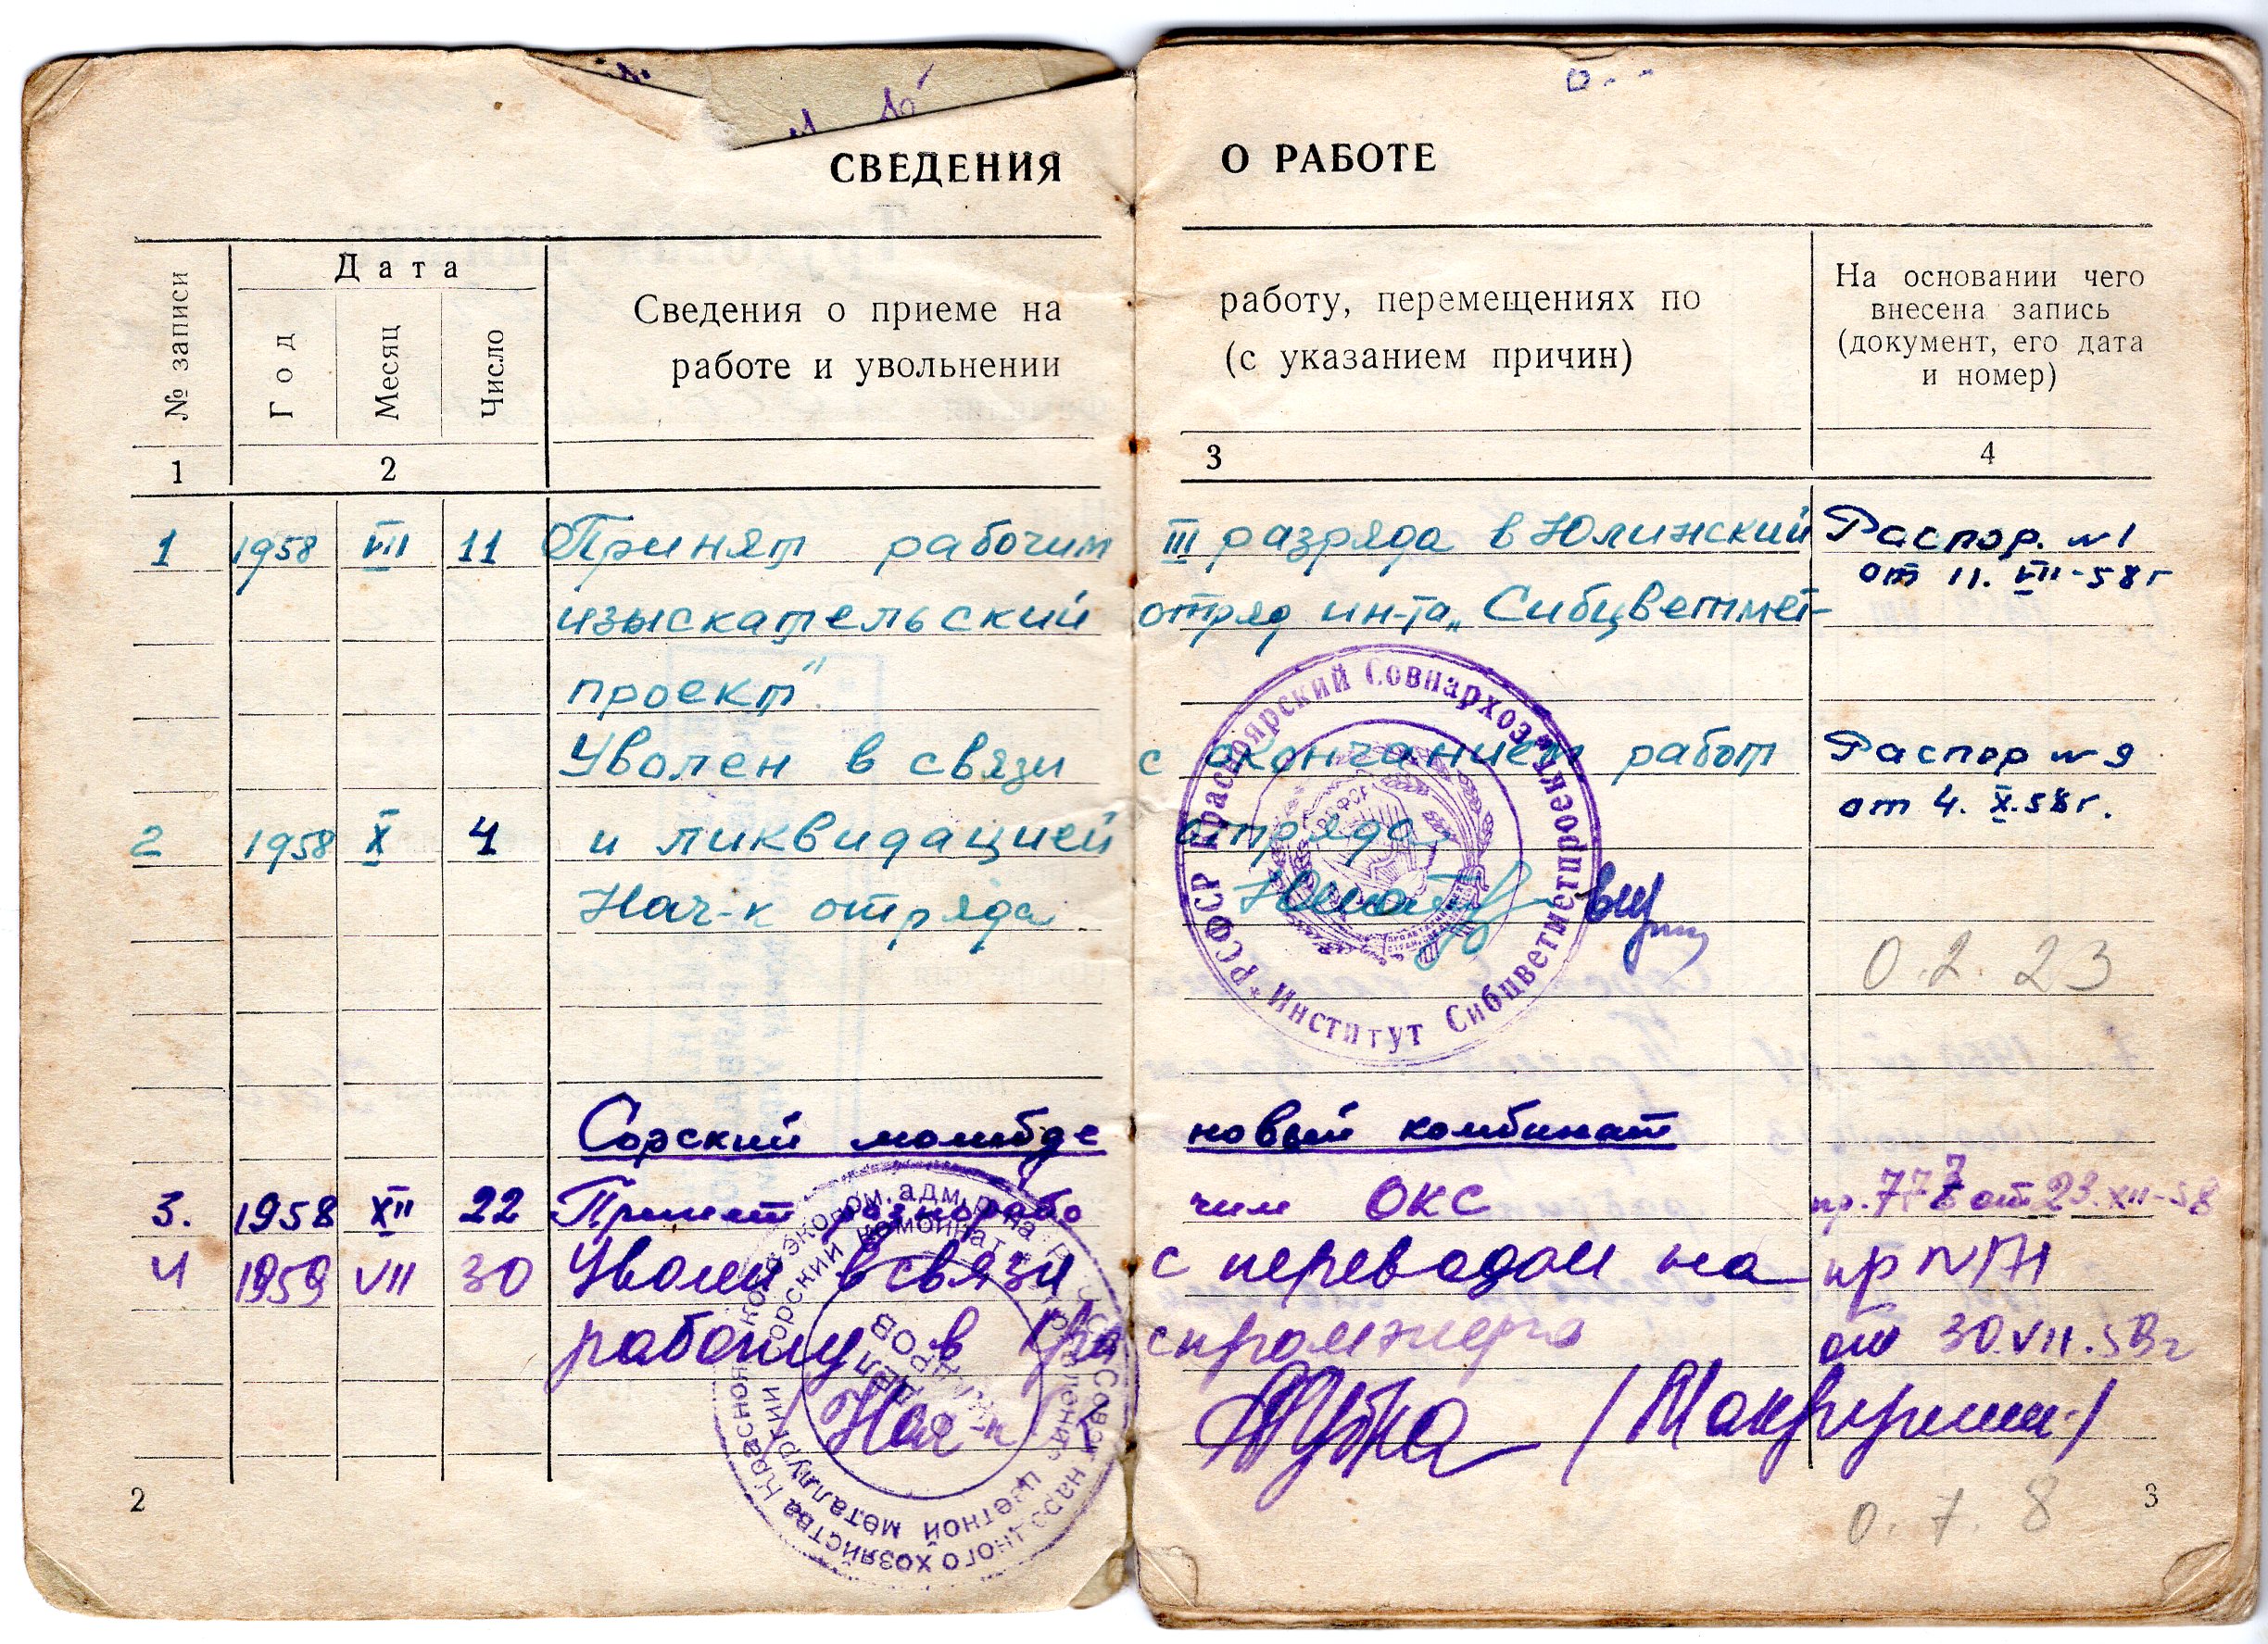 СВЕДЕНИЯ О РАБОТЕ
№ записи
Дата
Год
Месяц
Число
Сведения о приеме на работу, перемещениях по
работе и увольнении (с указанием причин)
На основании чего
внесена запись
(документ, его дата
и номер)
1 2 3 4
1 1958 VII 11 Принят рабочим III разряда в Юлинский Распор. №1
от 11. VII-58г
изыскательский отряд ин-та „Сибцветмет-
проект".
Уволен в связи с окончанием работ Распор №9
от 4. X.58г.
2 1958 X 4 и ликвидацией отряда.
Нач-к отряда
РСФСР Красноярский Совнархоз
Институт Сибцветметпроект
0.2.23
Сорский молибде новый комбинат
3. 1958 XII 22 Принят разнорабо чим ОКС пр. от 23.XII-58
4 1959 VII 30 Уволен в связи с переводом на пр
работу в от 30.VII.59г
Нач-к
ного хозяйства Краснояр
цветной металлургии Сорский
комбинат
0.7.8
2
3